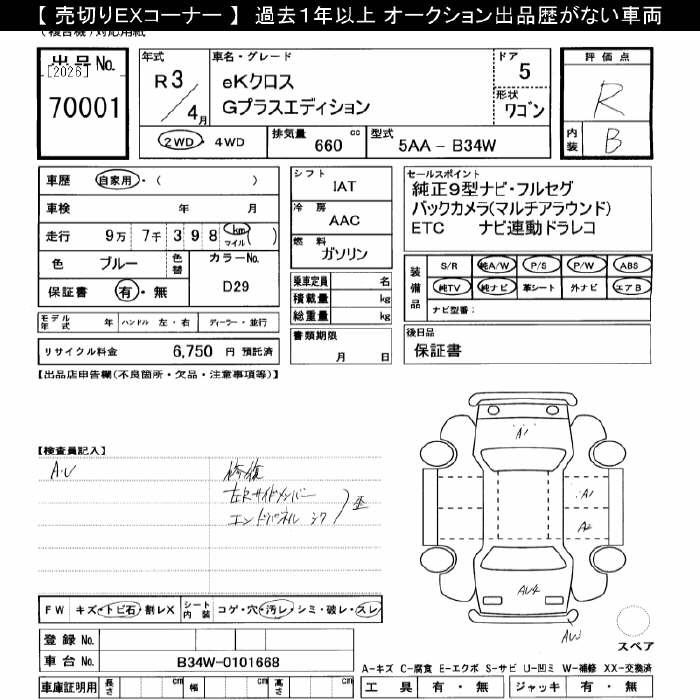 【 売切りEXコーナー 】 過去1年以上 オークション出品歴がない車両
出品No.
[2026]
70001
年式
R 3
4 月
車名・グレード
eKクロス
Gプラスエディション
ドア
5
形状
ワゴン
評価点
R
内装
B
2WD ・ 4WD
排気量 660 cc
型式 5AA - B34W
車歴 自家用・( )
車検 年 月
走行 9万 7千 3 9 8 km マイル ( )
色 ブルー 色替 カラーNo.
保証書 有・無 D29
モデル年式 年 ハンドル 左・右 ディーラー・並行
リサイクル料金 6,750 円 預託済
シフト
IAT
冷房
AAC
燃料
ガソリン
乗車定員 名
積載量 kg
総重量 kg
書類期限
月 日
セールスポイント
純正9型ナビ・フルセグ
バックカメラ(マルチアラウンド)
ETC ナビ連動ドラレコ
装備品
S/R 純A/W P/S P/W ABS
純TV 純ナビ 革シート 外ナビ エアB
ナビ型番:
後日品
保証書
【出品店申告欄(不良箇所・欠品・注意事項等)】
【検査員記入】
A・U 修復
左Rサイドメンバー
エンドパネル
歪
A1
A1
A2
AU4
AW
スペア
FW キズ・トビ石・割レX シート内装 コゲ・穴・汚レ・シミ・破レ・スレ
登録 No.
車台 No. B34W-0101668
車庫証明用 長さ cm 幅 cm 高さ cm
A-キズ C-腐食 E-エクボ S-サビ U-凹ミ W-補修 XX-交換済
工具 有・無 ジャッキ 有・無